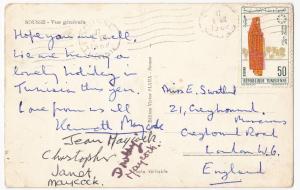 SOUSSE - Vue générale
Hope you are well.
We are having a
lovely holiday in
Tunisia this year.
Love from us all
Kenneth Maycock
Jean Maycock
Christopher
Janet
Maycock.
Maycock
Miss E. Scotland
21, Greyhound
Mansions
Greyhound Road
London W.6.
England
50